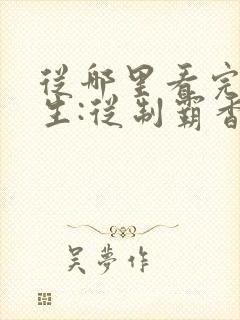 從哪里看完
生:從制霸香
吴夢作